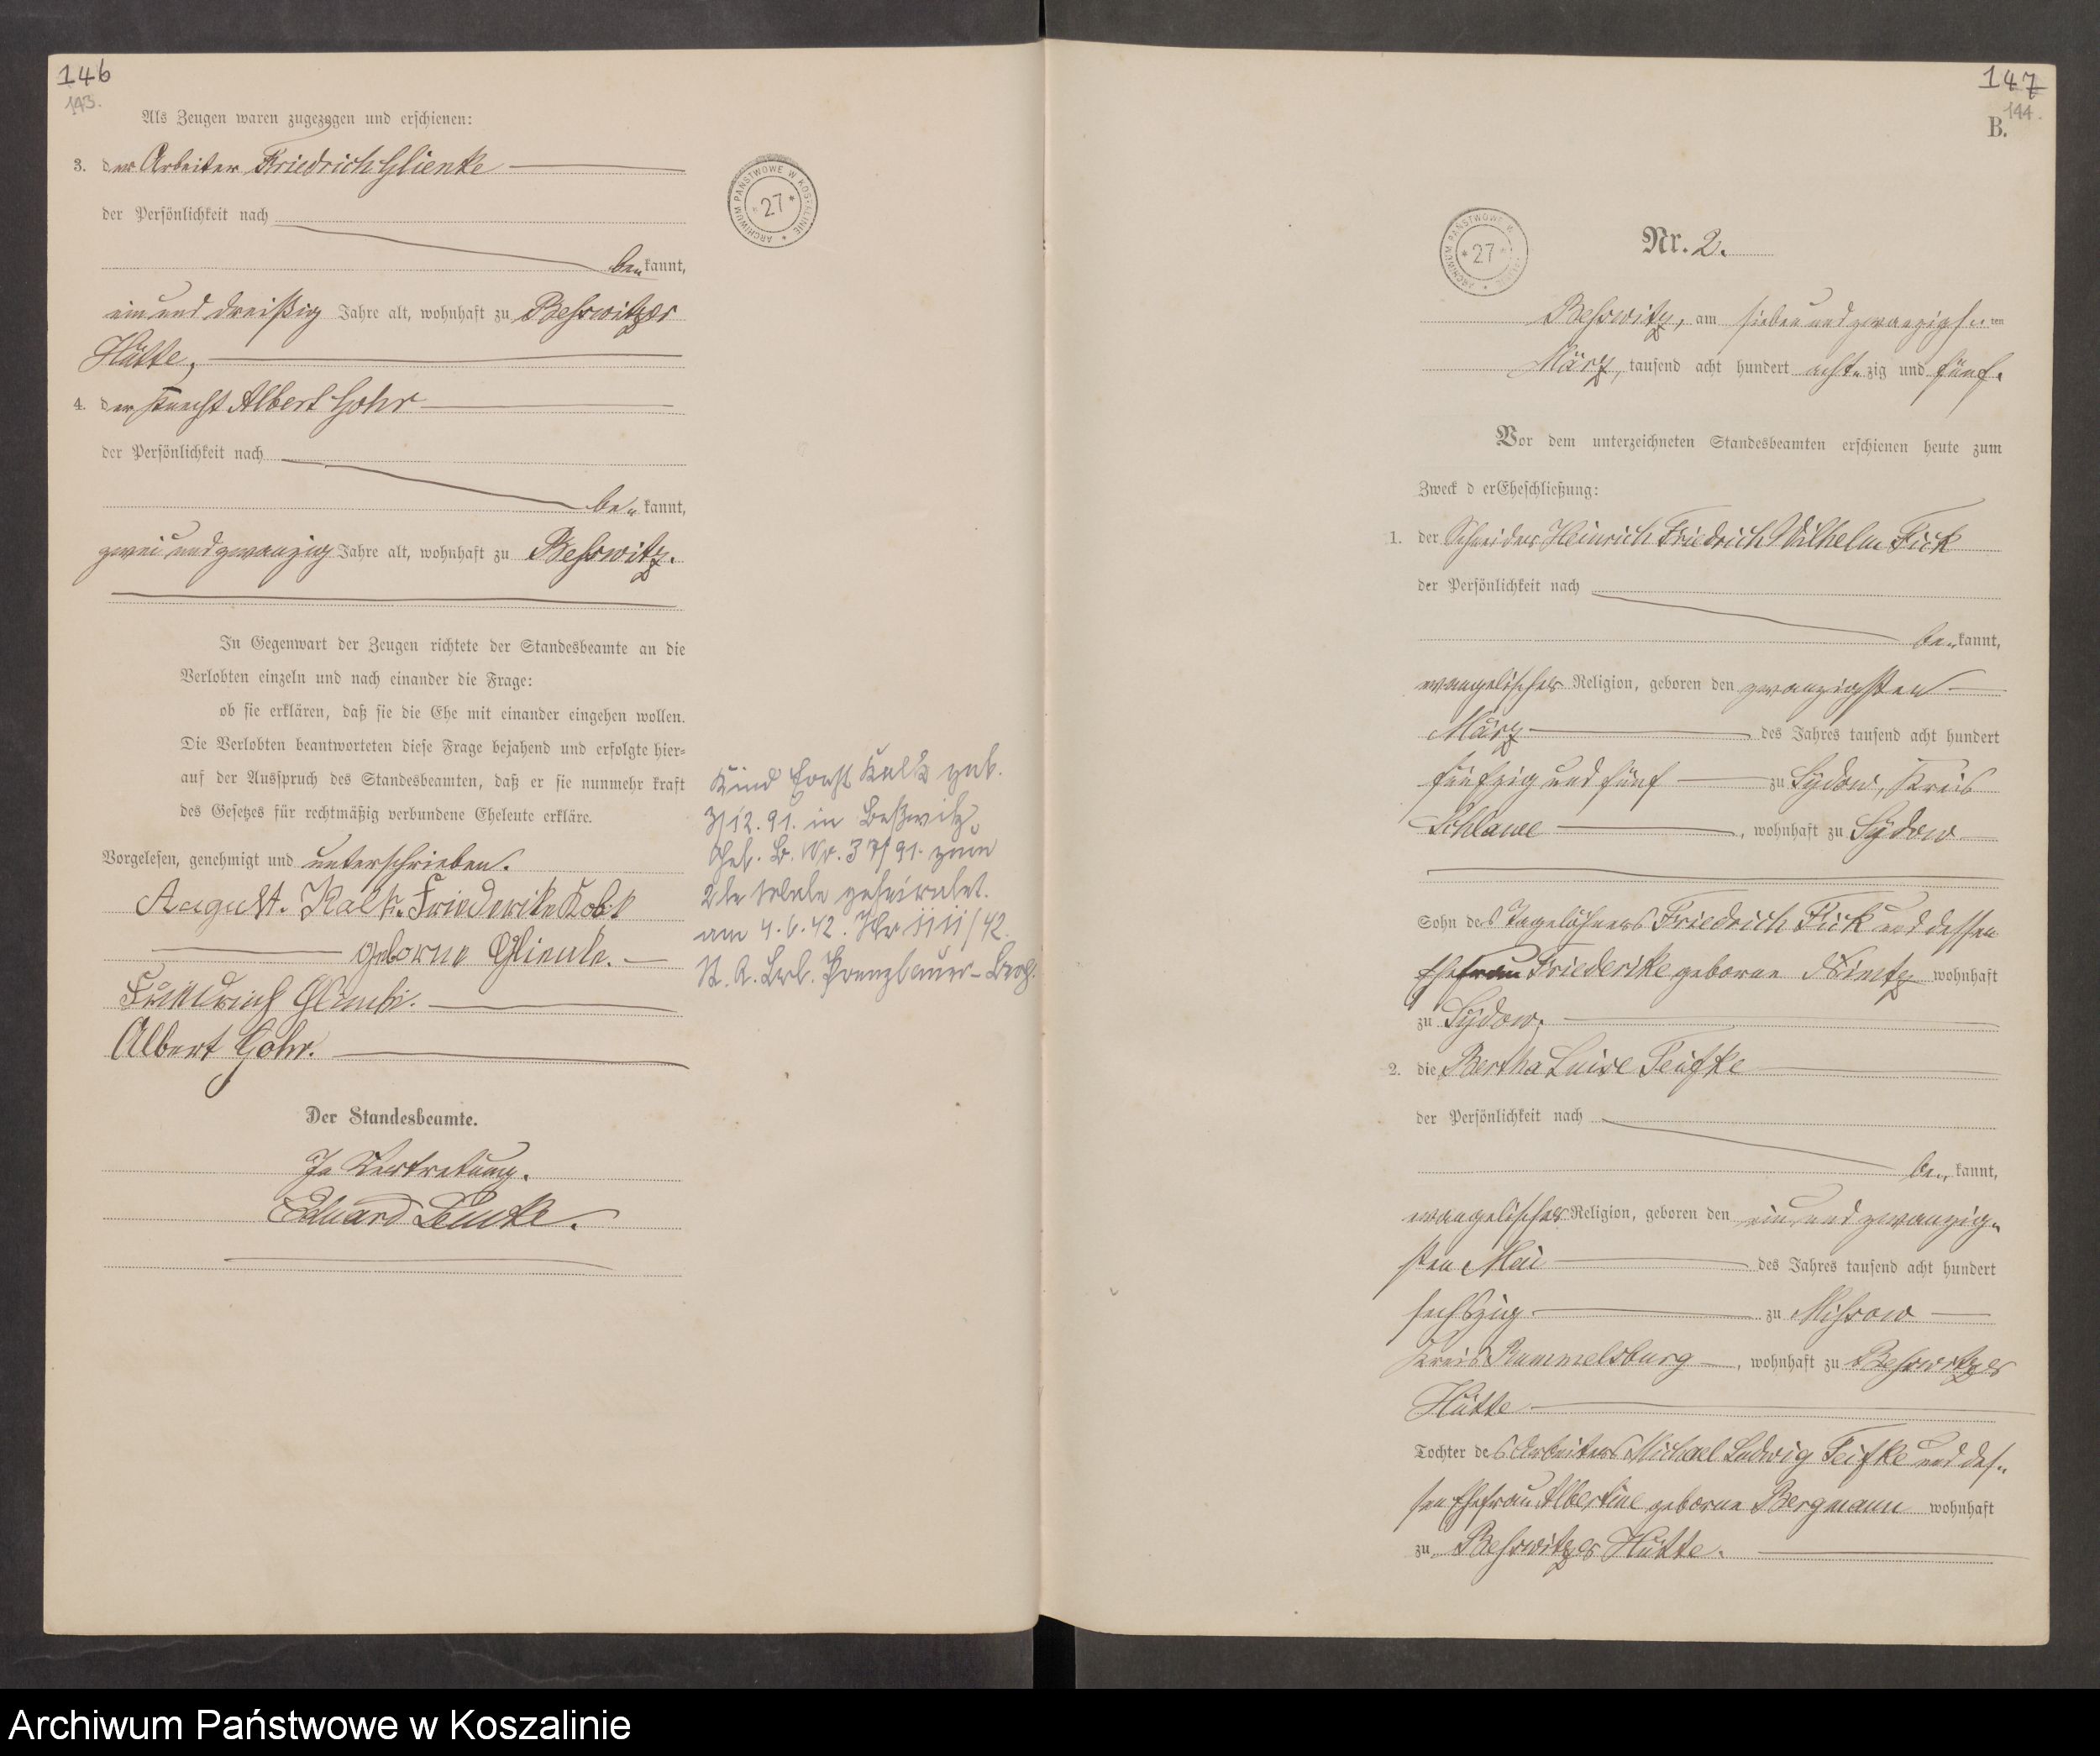 146
143.
Als Zeugen waren zugezogen und erschienen:
3. der Arbeiter Friedrich Glienke
der Persönlichkeit nach
be„kannt,
ein und dreißig Jahre alt, wohnhaft zu Besswitzer
Hütte,
4. der Knecht Albert Gohr
der Persönlichkeit nach
be„kannt,
zwei und zwanzig Jahre alt, wohnhaft zu Besswitz.
In Gegenwart der Zeugen richtete der Standesbeamte an die
Verlobten einzeln und nach einander die Frage:
ob sie erklären, daß sie die Ehe mit einander eingehen wollen.
Die Verlobten beantworteten diese Frage bejahend und erfolgte hier-
auf der Ausspruch des Standesbeamten, daß er sie nunmehr kraft
des Gesetzes für rechtmäßig verbundene Eheleute erkläre.
Vorgelesen, genehmigt und unterschrieben.
August. Kalk. Friederike
geborne Glienke.
Friedrich
Albert Gohr.
Der Standesbeamte.
In Vertretung.
Eduard
ARCHIWUM PAŃSTWOWE W KOSZALINIE
* 27 *
Kind Ernst Kalk geb.
3/12.91. in Beßwitz
Geb. B. Nr. 37/91. zum
2te Male geheiratet.
am 4.6.42.
St. A. Prenzlauer-Berg.
147
144.
B.
ARCHIWUM PAŃSTWOWE W
* 27 *
Nr. 2.
Besswitz, am sieben und zwanzigsten
März, tausend acht hundert acht„zig und fünf.
Vor dem unterzeichneten Standesbeamten erschienen heute zum
Zweck d erEheschließung:
1. der Schneider Heinrich Friedrich Wilhelm Fick
der Persönlichkeit nach
be„kannt,
evangelischer Religion, geboren den zwanzigsten
März des Jahres tausend acht hundert
fünfzig und fünf zu Sydow, Kreis
Schlawe, wohnhaft zu Sydow
Sohn des Tagelöhners Friedrich Fick und dessen
Ehefrau Friederike geborne wohnhaft
zu Sydow.
2. die Bertha Luise Teifke
der Persönlichkeit nach
be„kannt,
evangelischer Religion, geboren den ein und zwanzig„
sten Mai des Jahres tausend acht hundert
sechszig zu Missow
Kreis Rummelsburg, wohnhaft zu Besswitzer
Hütte
Tochter des Arbeiters Michael Ludwig Teifke und des„
sen Ehefrau Albertine geborne Bergmann wohnhaft
zu Besswitzer Hütte.
Archiwum Państwowe w Koszalinie